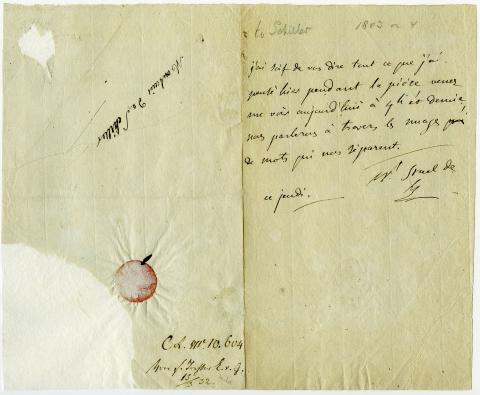 to Schiller 1803 or 4
j'ai soif de vous dire tout ce que j'ai
pensé hier pendant la pièce venez
me voir aujourd'hui à 4 h et demie
nous parlerons à travers les nuages
de mots qui nous séparent.
Stael de
ce jeudi.
Monsieur De Schiller
C.L. Nr. 10.604